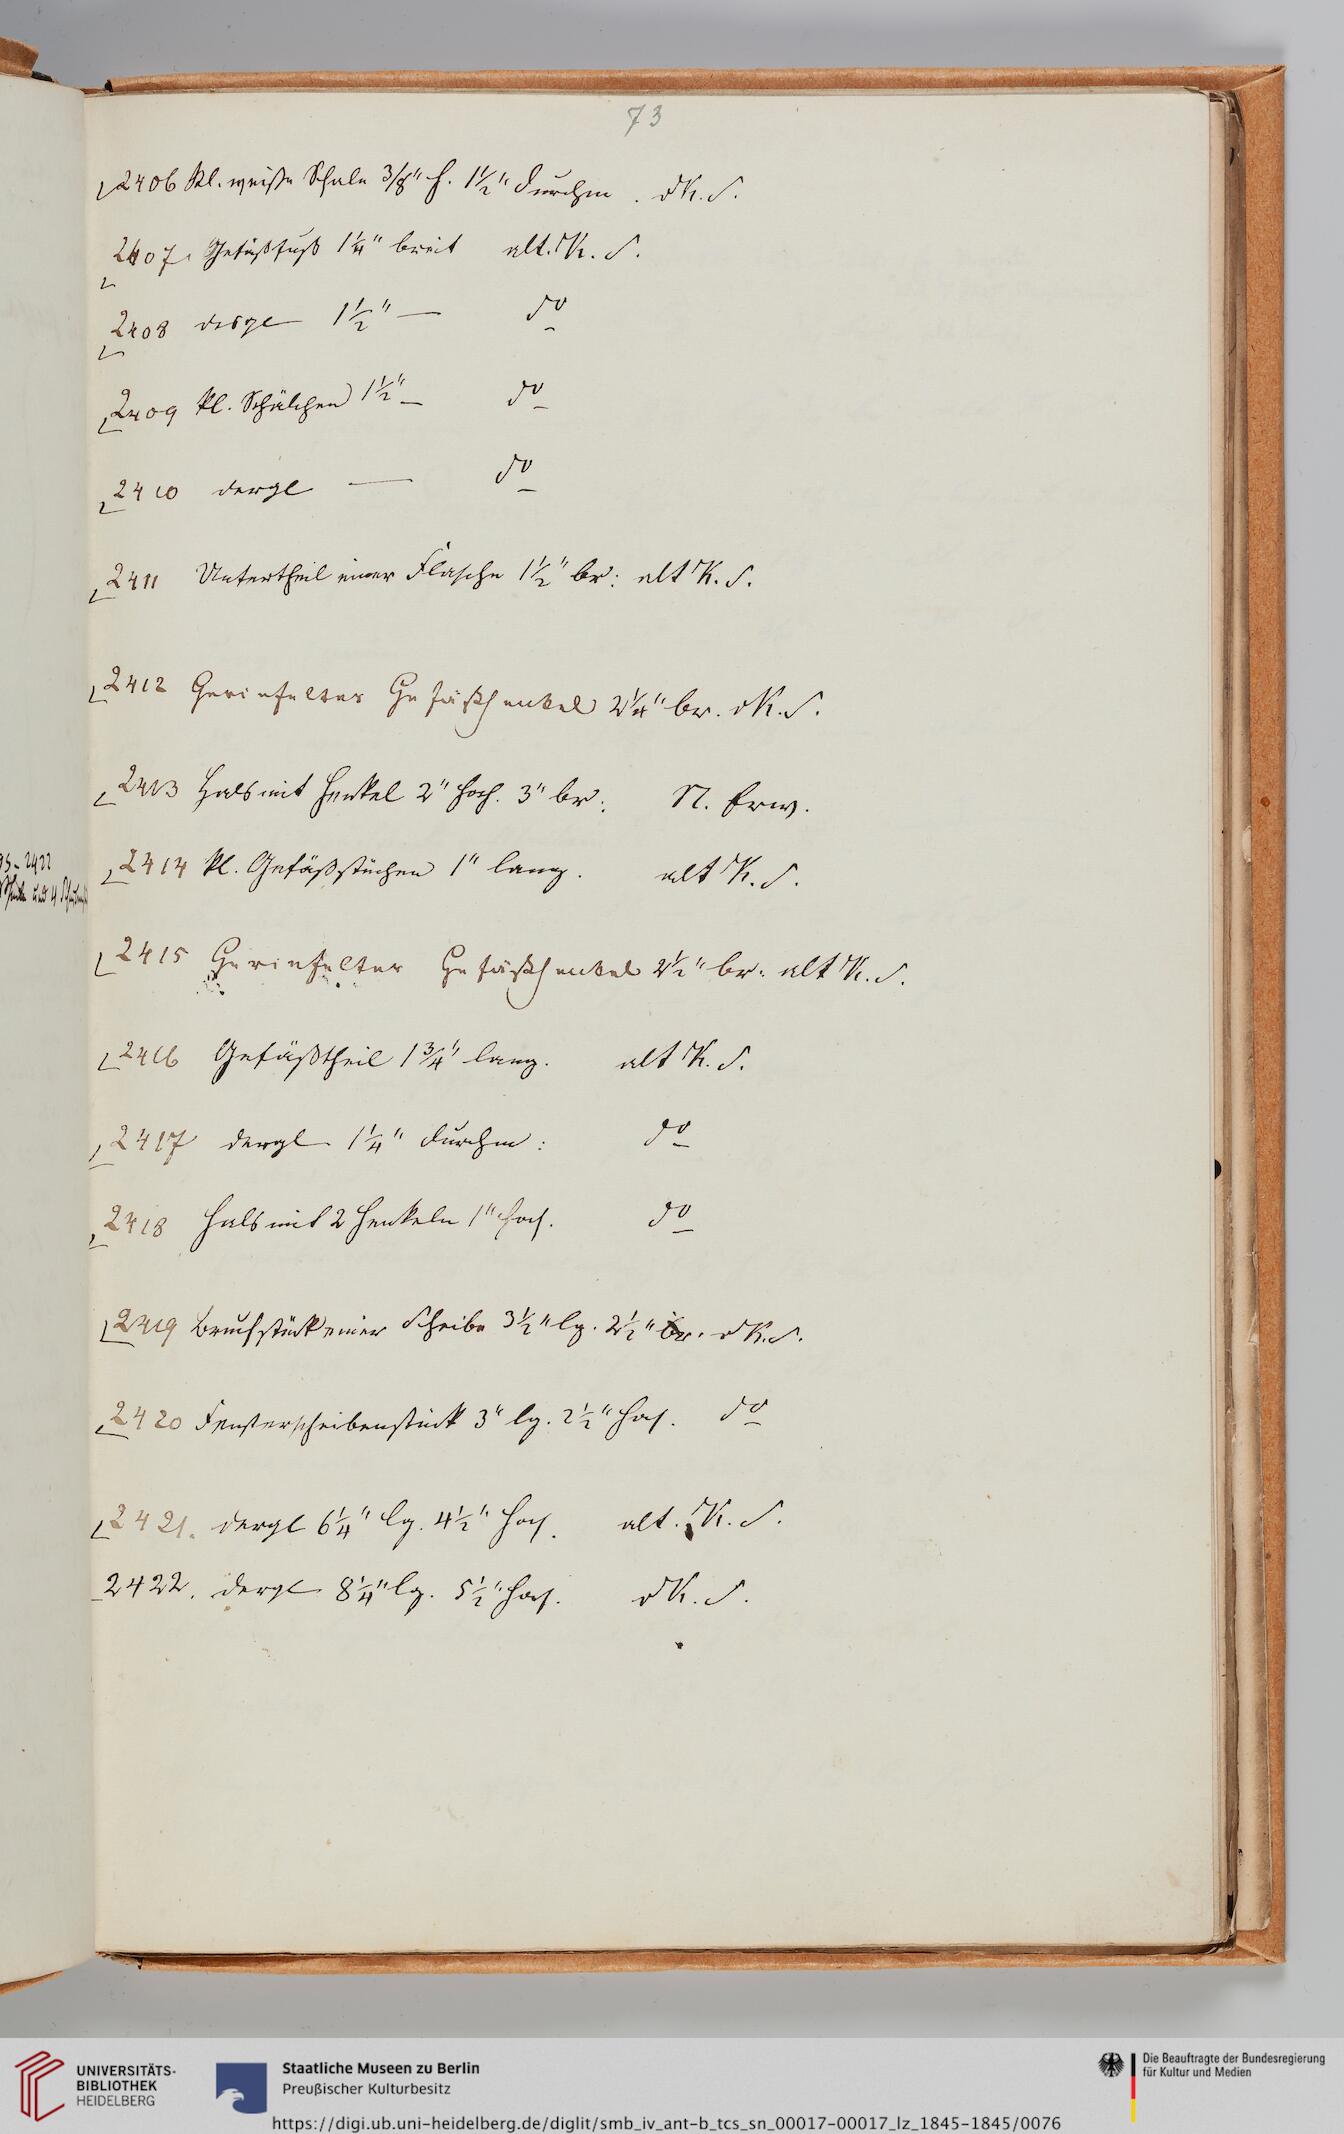 73
2406 Kl. weiße Schale 3/8" h. 1 1/2" Durchm. d K. S.
2407. Gefäßfuß 1 1/4" breit alt. K. S.
2408 desgl — 1 1/2" — do
2409 kl. Schälchen 1 1/2" — do
2410 dergl — do
2411 Untertheil einer Flasche 1 1/2" br: alt K. S.
2412 Geriefelter Gefäßhenkel 2 1/4" br. d K. S.
2413 Hals mit Henkel 2" hoch. 3" br. N. Erw.
2414 kl. Gefäßstückchen 1" lang. alt K. S.
95-2422
und 4
2415 Geriefelter Gefäßhenkel 2 1/2" br: alt K. S.
2416 Gefäßtheil 1 3/4" lang. alt K. S.
2417 dergl 1 1/4" Durchm: do
2418 Hals mit 2 Henkeln 1" hoch. do
2419 Bruchstück einer Scheibe 3 1/2" lg. 2 1/2" br. d K. S.
2420 Fensterscheibenstück 3" lg. 2 1/2" hoch. do
2421. dergl 6 1/4" lg. 4 1/2" hoch. alt. K. S.
2422. dergl 8 1/4" lg. 5 1/2" hoch. d K. S.
UNIVERSITÄTS-
BIBLIOTHEK
HEIDELBERG
Staatliche Museen zu Berlin
Preußischer Kulturbesitz
Die Beauftragte der Bundesregierung
für Kultur und Medien
https://digi.ub.uni-heidelberg.de/diglit/smb_iv_ant-b_tcs_sn_00017-00017_lz_1845-1845/0076